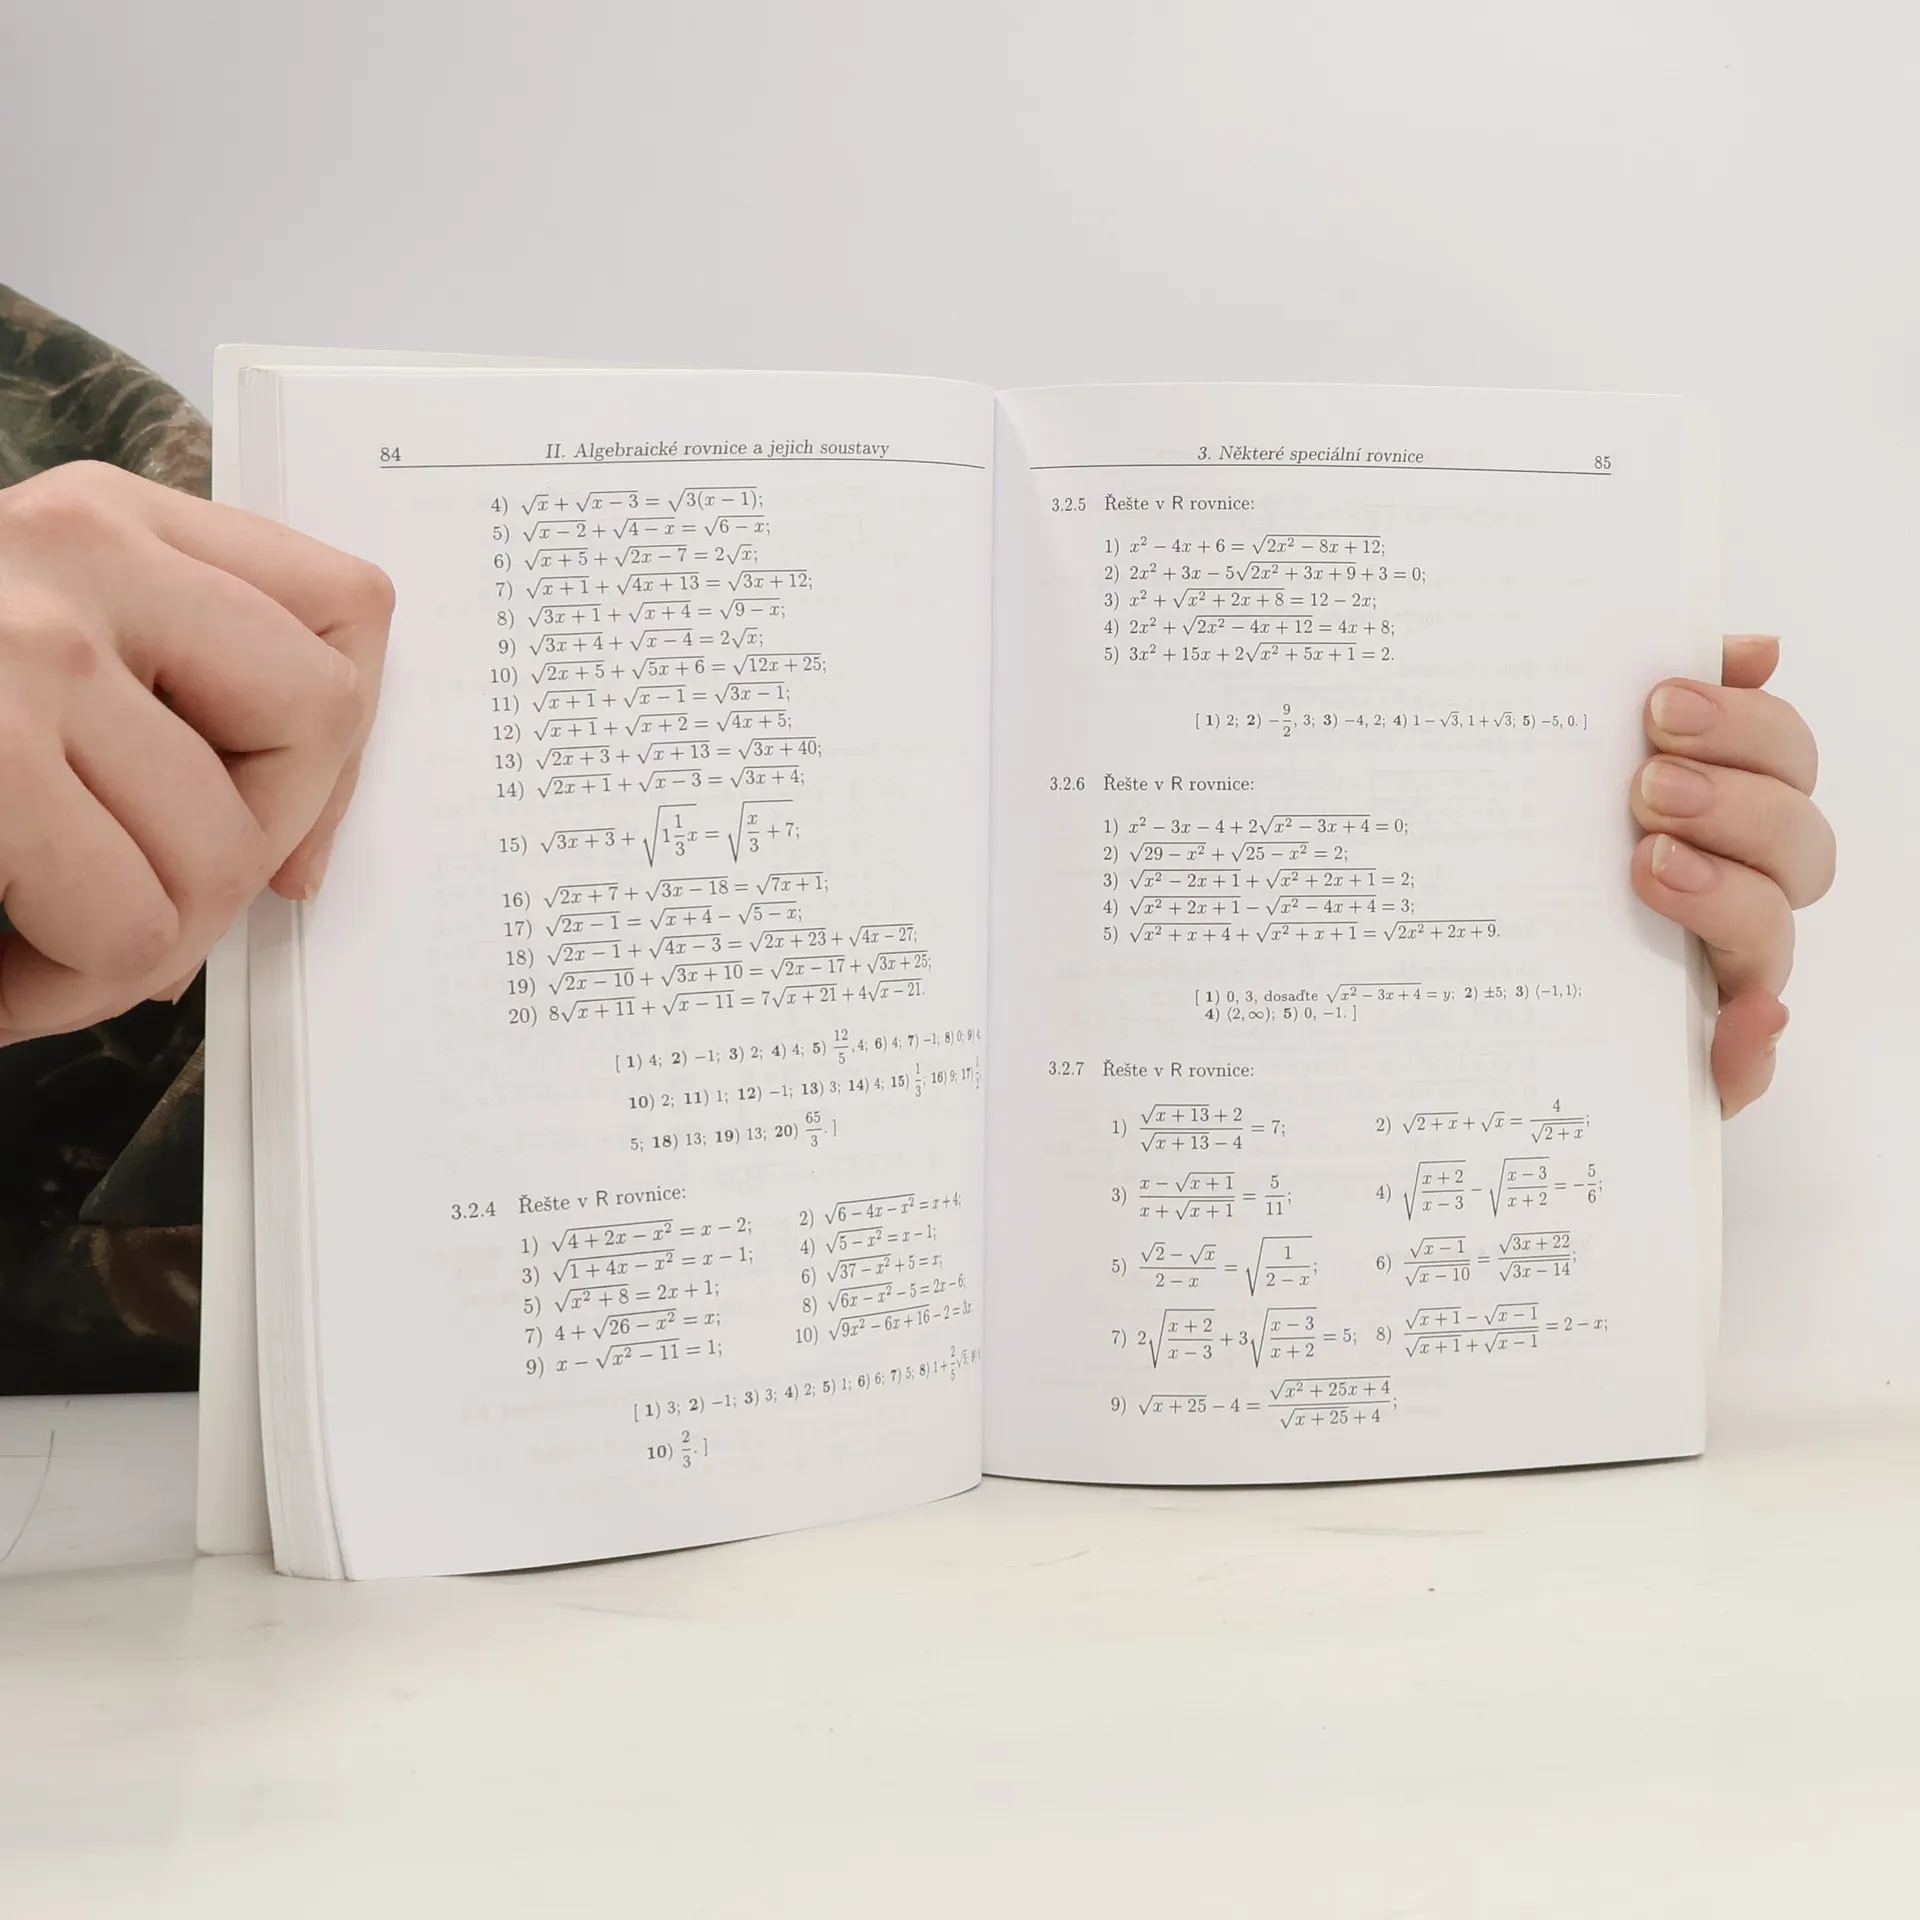 84 II. Algebraické rovnice a jejich soustavy
4) √x + √(x − 3) = √(3(x − 1));
5) √(x − 2) + √(4 − x) = √(6 − x);
6) √(x + 5) + √(2x − 7) = 2√x;
7) √(x + 1) + √(4x + 13) = √(3x + 12);
8) √(3x + 1) + √(x + 4) = √(9 − x);
9) √(3x + 4) + √(x − 4) = 2√x;
10) √(2x + 5) + √(5x + 6) = √(12x + 25);
11) √(x + 1) + √(x − 1) = √(3x − 1);
12) √(x + 1) + √(x + 2) = √(4x + 5);
13) √(2x + 3) + √(x + 13) = √(3x + 40);
14) √(2x + 1) + √(x − 3) = √(3x + 4);
15) √(3x + 3) + √(1 1/3 x) = √(x/3 + 7);
16) √(2x + 7) + √(3x − 18) = √(7x + 1);
17) √(2x − 1) = √(x + 4) − √(5 − x);
18) √(2x − 1) + √(4x − 3) = √(2x + 23) + √(4x − 27);
19) √(2x − 10) + √(3x + 10) = √(2x − 17) + √(3x + 25);
20) 8√(x + 11) + √(x − 11) = 7√(x + 21) + 4√(x − 21).
[ 1) 4; 2) −1; 3) 2; 4) 4; 5) 12/5, 4; 6) 4; 7) −1; 8) 0; 9)
10) 2; 11) 1; 12) −1; 13) 3; 14) 4; 15) 1/3; 16) 9; 17)
5; 18) 13; 19) 13; 20) 65/3. ]
3.2.4 Řešte v R rovnice:
1) √(4 + 2x − x²) = x − 2; 2) √(6 − 4x − x²) = x + 4;
3) √(1 + 4x − x²) = x − 1; 4) √(5 − x²) = x − 1;
5) √(x² + 8) = 2x + 1; 6) √(37 − x²) + 5 = x;
7) 4 + √(26 − x²) = x; 8) √(6x − x² − 5) = 2x − 6;
9) x − √(x² − 11) = 1; 10) √(9x² − 6x + 16) − 2 = 3x.
[ 1) 3; 2) −1; 3) 3; 4) 2; 5) 1; 6) 6; 7) 5; 8) 1 + 2/5 √5; 9)
10) 2/3. ]
3. Některé speciální rovnice 85
3.2.5 Řešte v R rovnice:
1) x² − 4x + 6 = √(2x² − 8x + 12);
2) 2x² + 3x − 5√(2x² + 3x + 9) + 3 = 0;
3) x² + √(x² + 2x + 8) = 12 − 2x;
4) 2x² + √(2x² − 4x + 12) = 4x + 8;
5) 3x² + 15x + 2√(x² + 5x + 1) = 2.
[ 1) 2; 2) −9/2, 3; 3) −4, 2; 4) 1 − √3, 1 + √3; 5) −5, 0. ]
3.2.6 Řešte v R rovnice:
1) x² − 3x − 4 + 2√(x² − 3x + 4) = 0;
2) √(29 − x²) + √(25 − x²) = 2;
3) √(x² − 2x + 1) + √(x² + 2x + 1) = 2;
4) √(x² + 2x + 1) − √(x² − 4x + 4) = 3;
5) √(x² + x + 4) + √(x² + x + 1) = √(2x² + 2x + 9).
[ 1) 0, 3, dosaďte √(x² − 3x + 4) = y; 2) ±5; 3) ⟨−1, 1⟩;
4) ⟨2, ∞); 5) 0, −1. ]
3.2.7 Řešte v R rovnice:
1) (√(x + 13) + 2)/(√(x + 13) − 4) = 7; 2) √(2 + x) + √x = 4/√(2 + x);
3) (x − √(x + 1))/(x + √(x + 1)) = 5/11; 4) √((x + 2)/(x − 3)) − √((x − 3)/(x + 2)) = −5/6;
5) (√2 − √x)/(2 − x) = √(1/(2 − x)); 6) √(x − 1)/√(x − 10) = √(3x + 22)/√(3x − 14);
7) 2√((x + 2)/(x − 3)) + 3√((x − 3)/(x + 2)) = 5; 8) (√(x + 1) − √(x − 1))/(√(x + 1) + √(x − 1)) = 2 − x;
9) √(x + 25) − 4 = √(x² + 25x + 4)/(√(x + 25) + 4);